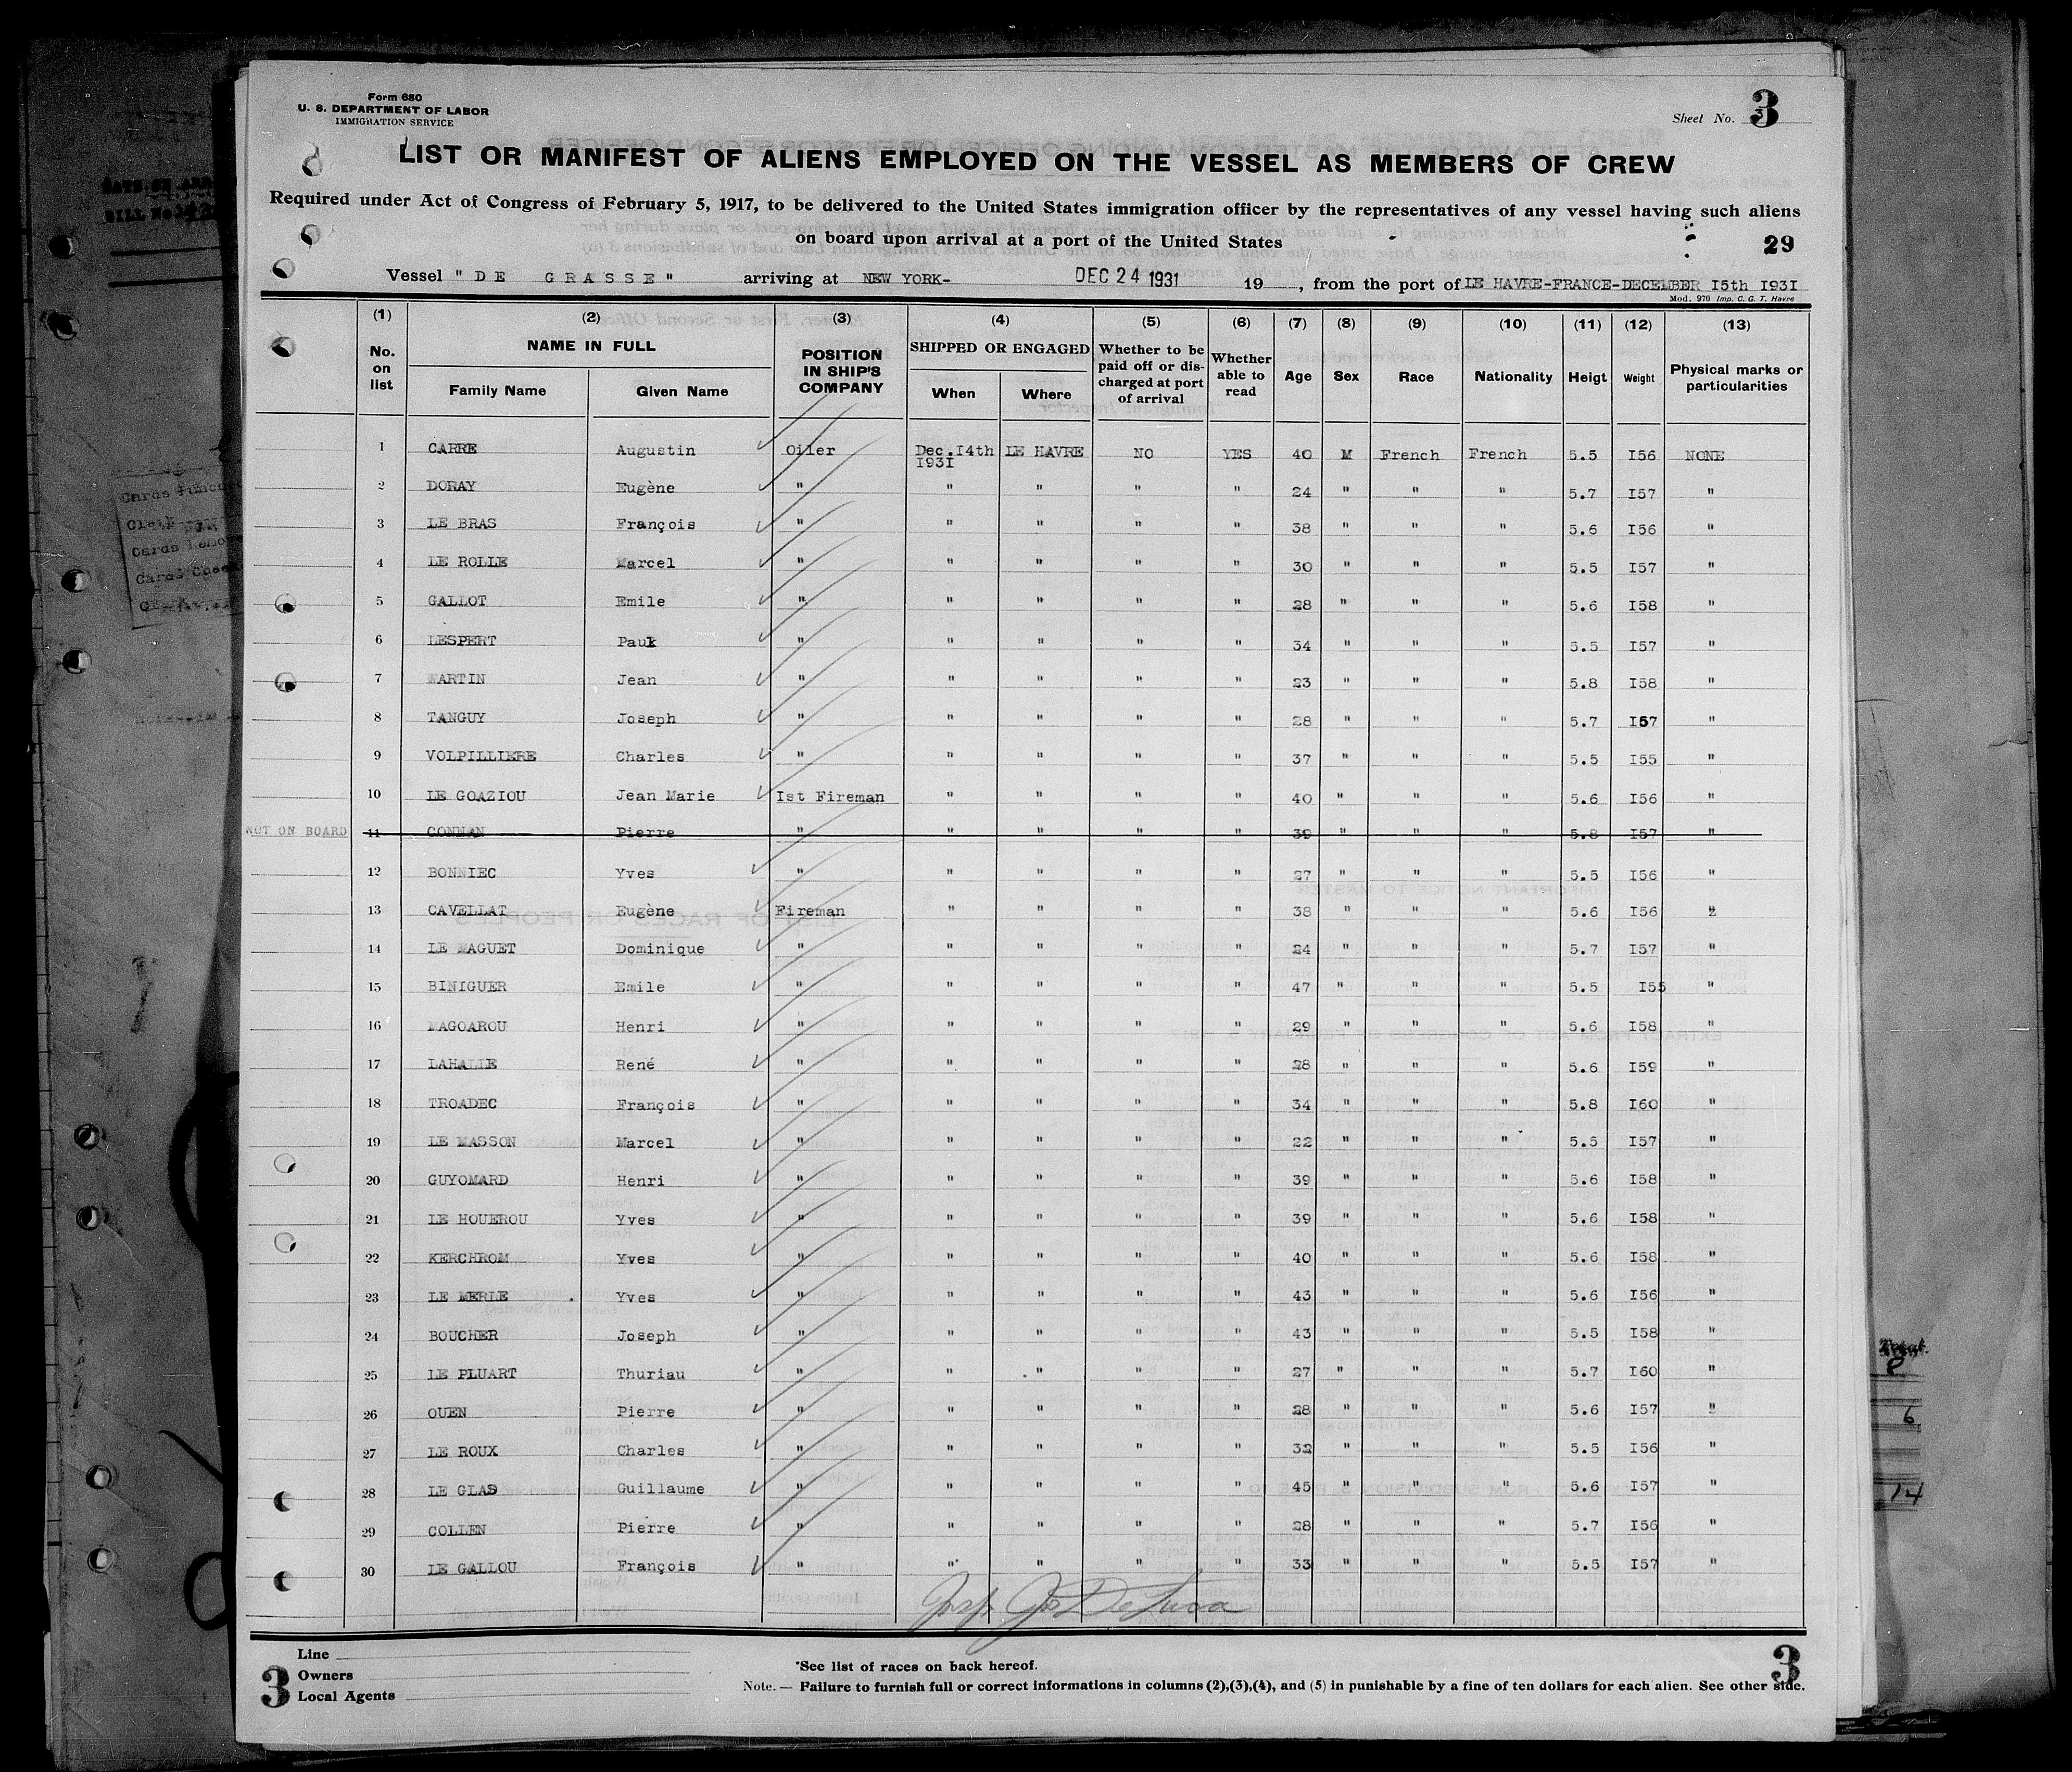 Form 680
U. S. DEPARTMENT OF LABOR
IMMIGRATION SERVICE
Sheet No. 3
LIST OR MANIFEST OF ALIENS EMPLOYED ON THE VESSEL AS MEMBERS OF CREW
Required under Act of Congress of February 5, 1917, to be delivered to the United States immigration officer by the representatives of any vessel having such aliens
on board upon arrival at a port of the United States
29
Vessel "DE GRASSE" arriving at NEW YORK- DEC 24 1931 19 , from the port of LE HAVRE-FRANCE-DECEMBER I5th I93I
Mod. 970 Imp. C. G. T. Havre
(1) (2) (3) (4) (5) (6) (7) (8) (9) (10) (11) (12) (13)
No. on list NAME IN FULL Family Name Given Name POSITION IN SHIP'S COMPANY SHIPPED OR ENGAGED When Where Whether to be paid off or discharged at port of arrival Whether able to read Age Sex Race Nationality Heigt Weight Physical marks or particularities
1 CARRE Augustin Oiler Dec.I4th I93I LE HAVRE NO YES 40 M French French 5.5 I56 NONE
2 DORAY Eugène " " " " " 24 " " " 5.7 I57 "
3 LE BRAS François " " " " " 38 " " " 5.6 I56 "
4 LE ROLLE Marcel " " " " " 30 " " " 5.5 I57 "
5 GALLOT Emile " " " " " 28 " " " 5.6 I58 "
6 LESPERT Paul " " " " " 34 " " " 5.5 I57 "
7 MARTIN Jean " " " " " 23 " " " 5.8 I58 "
8 TANGUY Joseph " " " " " 28 " " " 5.7 I57 "
9 VOLPILLIERE Charles " " " " " 37 " " " 5.5 I55 "
10 LE GOAZIOU Jean Marie Ist Fireman " " " " 40 " " " 5.6 I56 "
NOT ON BOARD 11 CONNAN Pierre " " " " " 39 " " " 5.8 I57 "
12 BONNIEC Yves " " " " " 27 " " " 5.5 I56 "
13 CAVELLAT Eugène Fireman " " " " 38 " " " 5.6 I56 "
14 LE MAGUET Dominique " " " " " 24 " " " 5.7 I57 "
15 BINIGUER Emile " " " " " 47 " " " 5.5 I55 "
16 MAGOAROU Henri " " " " " 29 " " " 5.6 I58 "
17 LAHALLE René " " " " " 28 " " " 5.6 I59 "
18 TROADEC François " " " " " 34 " " " 5.8 I60 "
19 LE MASSON Marcel " " " " " 22 " " " 5.5 I57 "
20 GUYOMARD Henri " " " " " 39 " " " 5.6 I58 "
21 LE HOUEROU Yves " " " " " 39 " " " 5.6 I58 "
22 KERCHROM Yves " " " " " 40 " " " 5.6 I58 "
23 LE MERLE Yves " " " " " 43 " " " 5.6 I56 "
24 BOUCHER Joseph " " " " " 43 " " " 5.5 I58 "
25 LE PLUART Thuriau " " " " " 27 " " " 5.7 I60 "
26 OUEN Pierre " " " " " 28 " " " 5.6 I57 "
27 LE ROUX Charles " " " " " 32 " " " 5.5 I56 "
28 LE GLAS Guillaume " " " " " 45 " " " 5.6 I57 "
29 COLLEN Pierre " " " " " 28 " " " 5.7 I56 "
30 LE GALLOU François " " " " " 33 " " " 5.5 I57 "
Line
Owners
Local Agents
3
*See list of races on back hereof.
Note. — Failure to furnish full or correct informations in columns (2),(3),(4), and (5) in punishable by a fine of ten dollars for each alien. See other side.
3